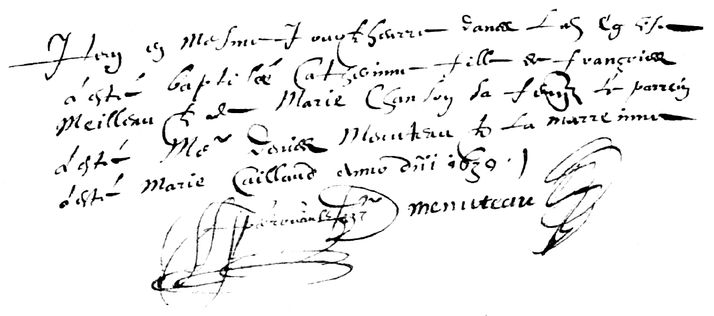 Item en mesme Jour & heure dans lad Eglise
a esté baptisée Catherinne fille de françois
Meilleau & de Marie Chanson sa femme le parrein
a esté Me Louis Menuteau & La marreinne
a esté Marie Caillaud Anno dni 1639
menuteau